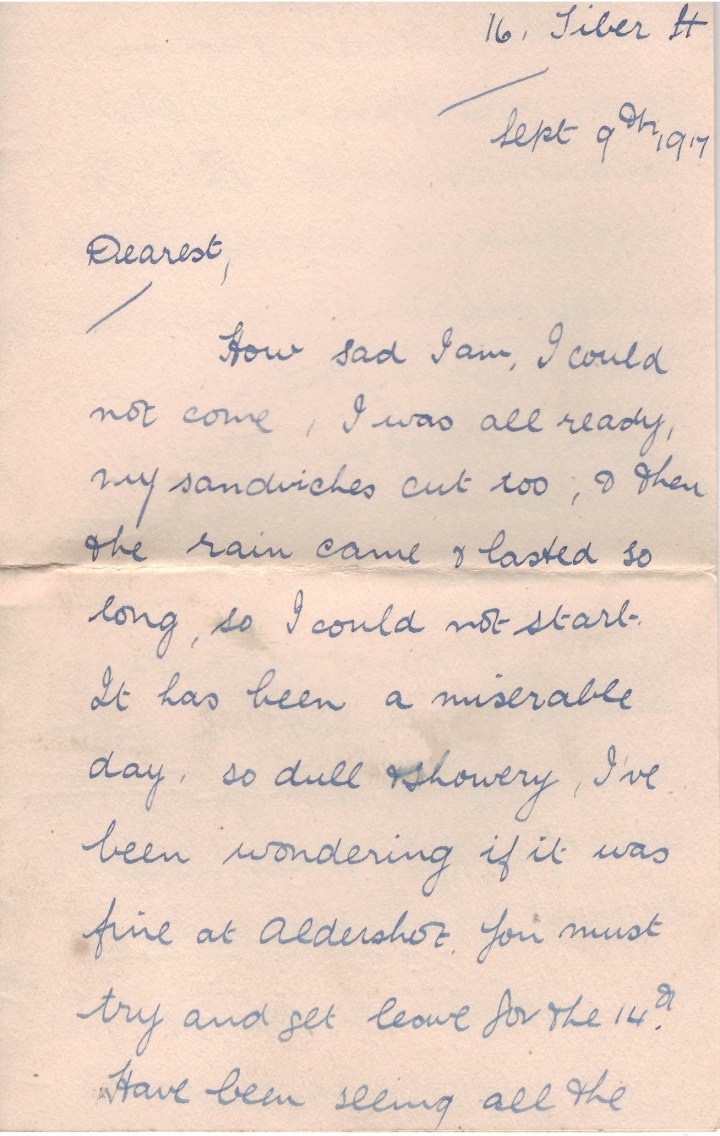 16. Tiber St
Sept 9th, 1917
Dearest,
How sad I am, I could
not come, I was all ready,
my sandwiches cut too, & then
the rain came & lasted so
long, so I could not start.
It has been a miserable
day, so dull & showery, I've
been wondering if it was
fine at Aldershot. You must
try and get leave for the 14th.
Have been seeing all the